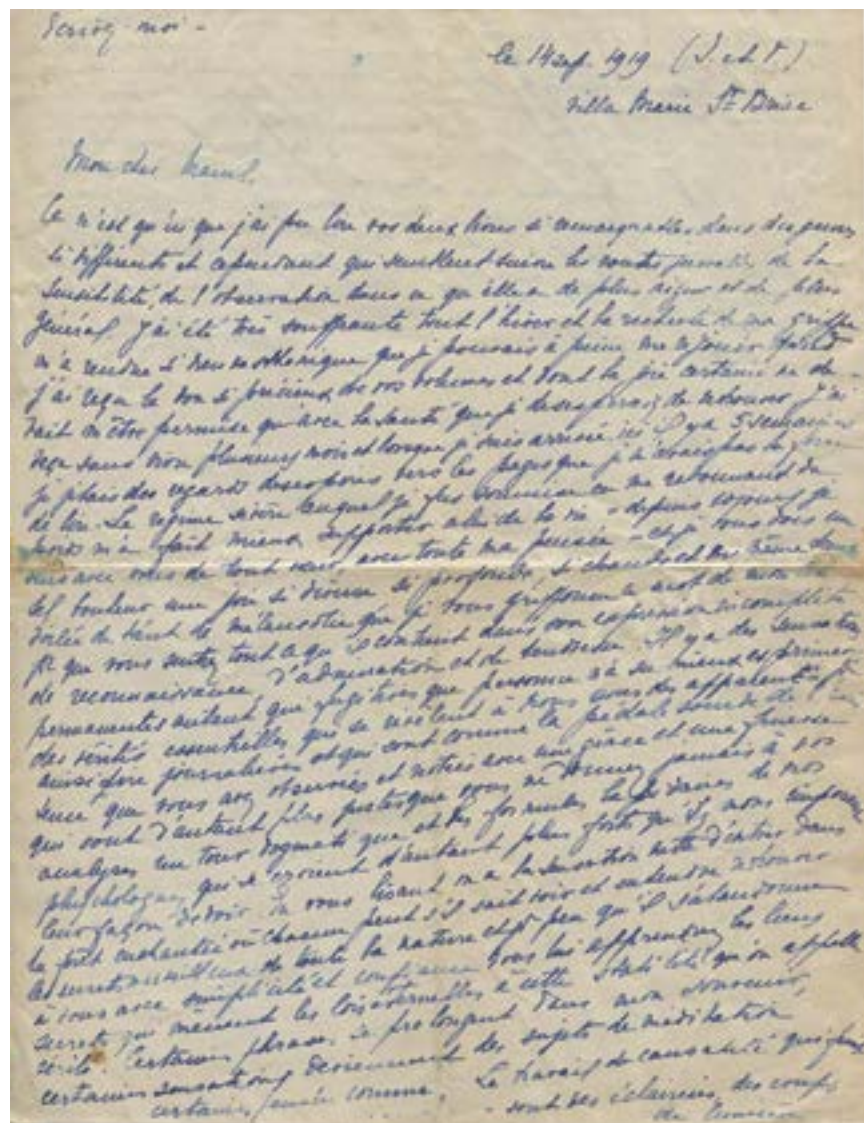 Écrivez-moi -
le 14 sep. 1919 (S. et O.)
Villa Marie St Brice
Mon cher Marcel,
Ce n'est qu'ici que j'ai pu lire vos deux livres si remarquables dans des genres
si différents et cependant qui semblent suivre les routes de la
sensibilité, de l'observation dans ce qu'elle a de plus aigu et de plus
général. J'ai été très souffrante tout l'hiver et la recherche de ma grippe
m'a rendue si neurasthénique que je pouvais à peine me réjouir quand
j'ai reçu le don si précieux de vos volumes et dont la joie certaine ne de-
vait m'être permise qu'avec la santé que je désespérais de retrouver. J'ai
plusieurs mois et lorsque je suis arrivée ici il y a 5 semaines
je jetais des regards désespérés vers les pages que je n'avais pas la force
de lire. Le régime sévère auquel je
m'a fait mieux supporter de la vie - depuis je
suis avec vous de tout cœur, avec toute ma pensée - et je vous dois un
tel bonheur une joie si divine si profonde, si
voilée de tant de mélancolie que je vous griffonne ce mot de mon
pr que vous sentiez tout ce qu'il contient dans son expression incomplète
de reconnaissance, d'admiration et de tendresse. Il y a des sensations
permanentes autant que fugitives que personne n'a su mieux exprimer
des vérités essentielles qui se révèlent à nous sous des apparences pr
ainsi dire journalières et qui sont comme la pédale sourde de
que vous avez observées et notées avec une grâce et une finesse
qui sont d'autant plus que vous ne donnez jamais à vos
analyses un tour dogmatique et les formules lapidaires de nos
psychologues qui se croient d'autant plus forts qu'ils nous imposent
leur façon de voir. En vous lisant on a la sensation d'entrer dans
la forêt enchantée où chacun peut s'il sait voir et entendre retrouver
de toute la nature et pr peu qu'il s'abandonne
à vous avec simplicité et confiance vous lui apprendrez les liens
secrets qui mènent les lois éternelles à cette qu'on appelle
Certaines phrases se prolongent dans mon souvenir,
certaines sensations deviennent des sujets de méditation
certaines comme. Le travail de causalité
- sont des éclaircies, des coups
de lumière